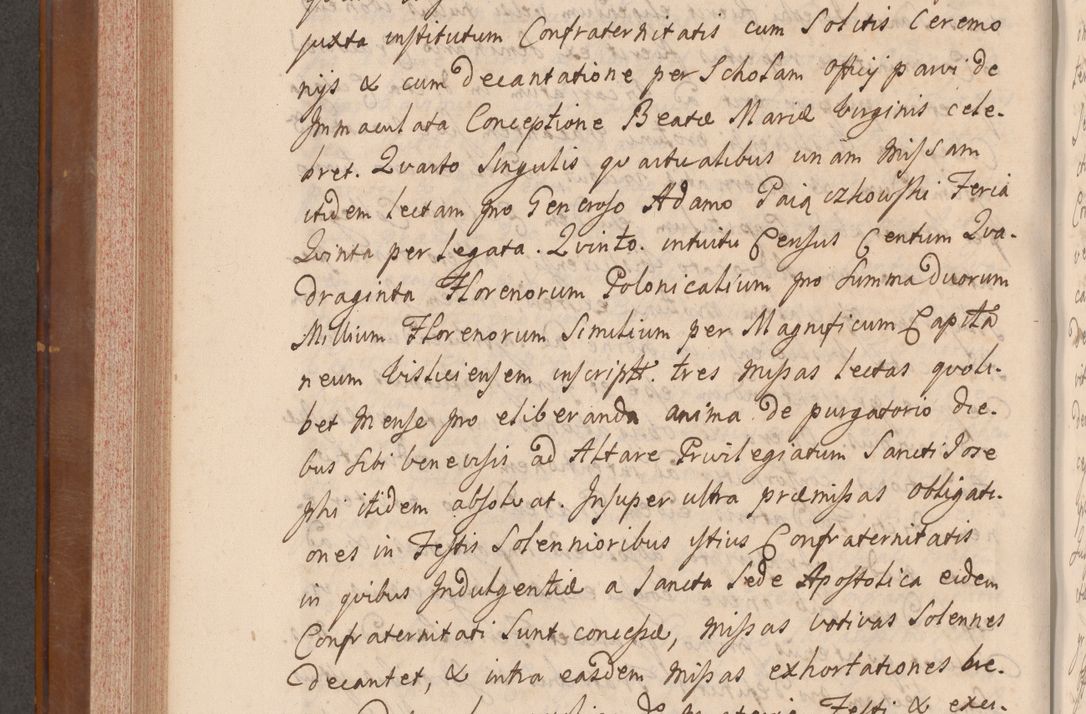 juxta institutum Confraternitatis cum Solitis Ceremo
nijs & cum decantatione per Scholam officij parvi de
Immaculata Conceptione Beatæ Mariæ Virginis cele-
bret. Quarto singulis quartualibus unam Missam
itidem lectam pro Generoso Adamo Paiączkowski Feria
Quinta per Legata. Quinto. intuitu Census Centum Qua-
draginta Florenorum Polonicalium pro Summa duorum
Millium Florenorum Similium per Magnificum Capita
neum Visliciensem inscriptt. tres Missas lectas quoli-
bet Mense pro eliberanda anima de purgatorio die-
bus sibi benevisis ad Altare Privilegiatum Sancti Jose
phi itidem absolvat. Insuper ultra præmissas obligati-
ones in Festis Solennioribus istius Confraternitatis
in quibus Indulgentiæ a Sancta Sede Apostolica eidem
Confraternitati Sunt concessæ, Missas votivas Solennes
decantet, & intra easdem Missas exhortationes bre-
Festi & exci-